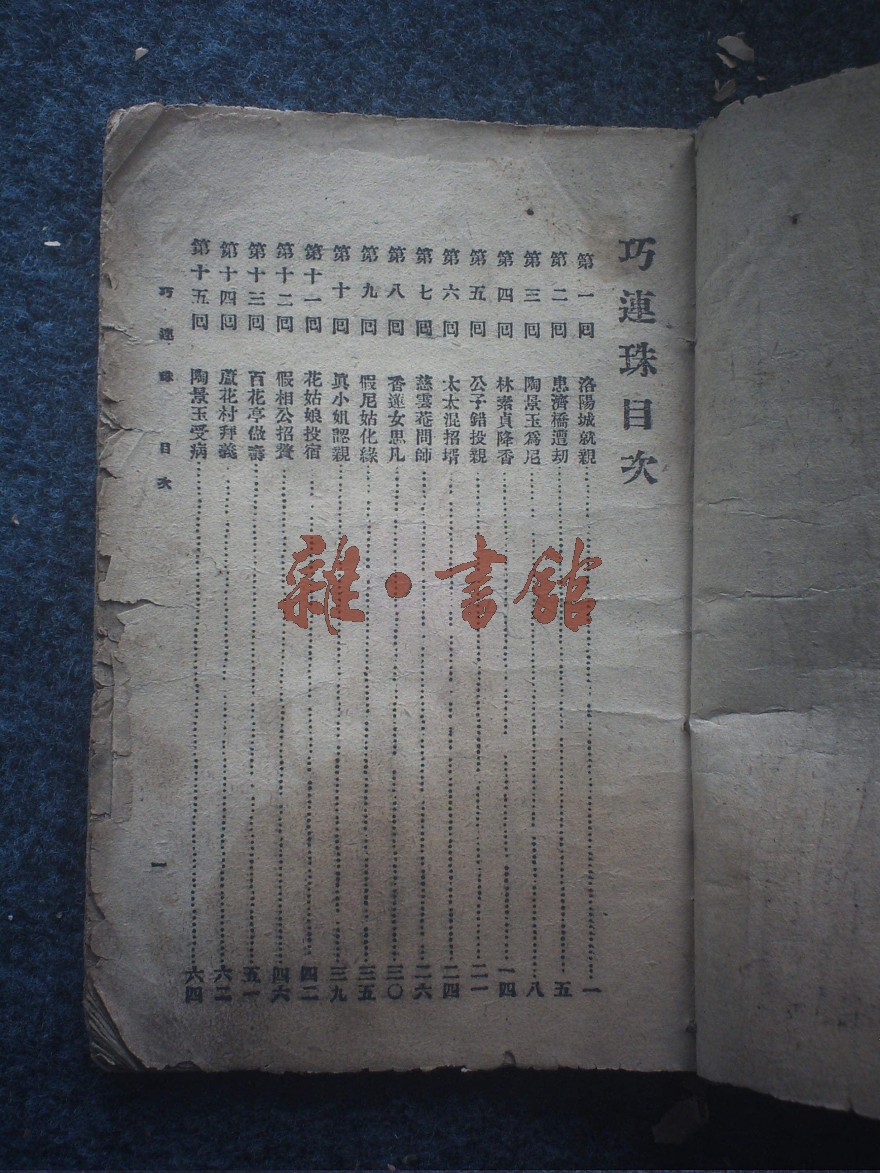 巧連珠目次
第一回 洛陽城就親 一
第二回 惠濟橋遭劫 五
第三回 陶景玉為尼 八
第四回 林素貞降香 一四
第五回 公子錯投親 二一
第六回 太太混招壻 二四
第七回 慈雲菴問師 二六
第八回 香蓮女思凡 三〇
第九回 假尼姑化緣 三五
第十回 眞小姐認親 三九
第十一回 花姑娘投宿 四二
第十二回 假相公招贅 四六
第十三回 百花亭做壽 五一
第十四回 蘆花村拜義 六二
第十五回 陶景玉受病 六四
巧連珠 目次 一
雜·書館